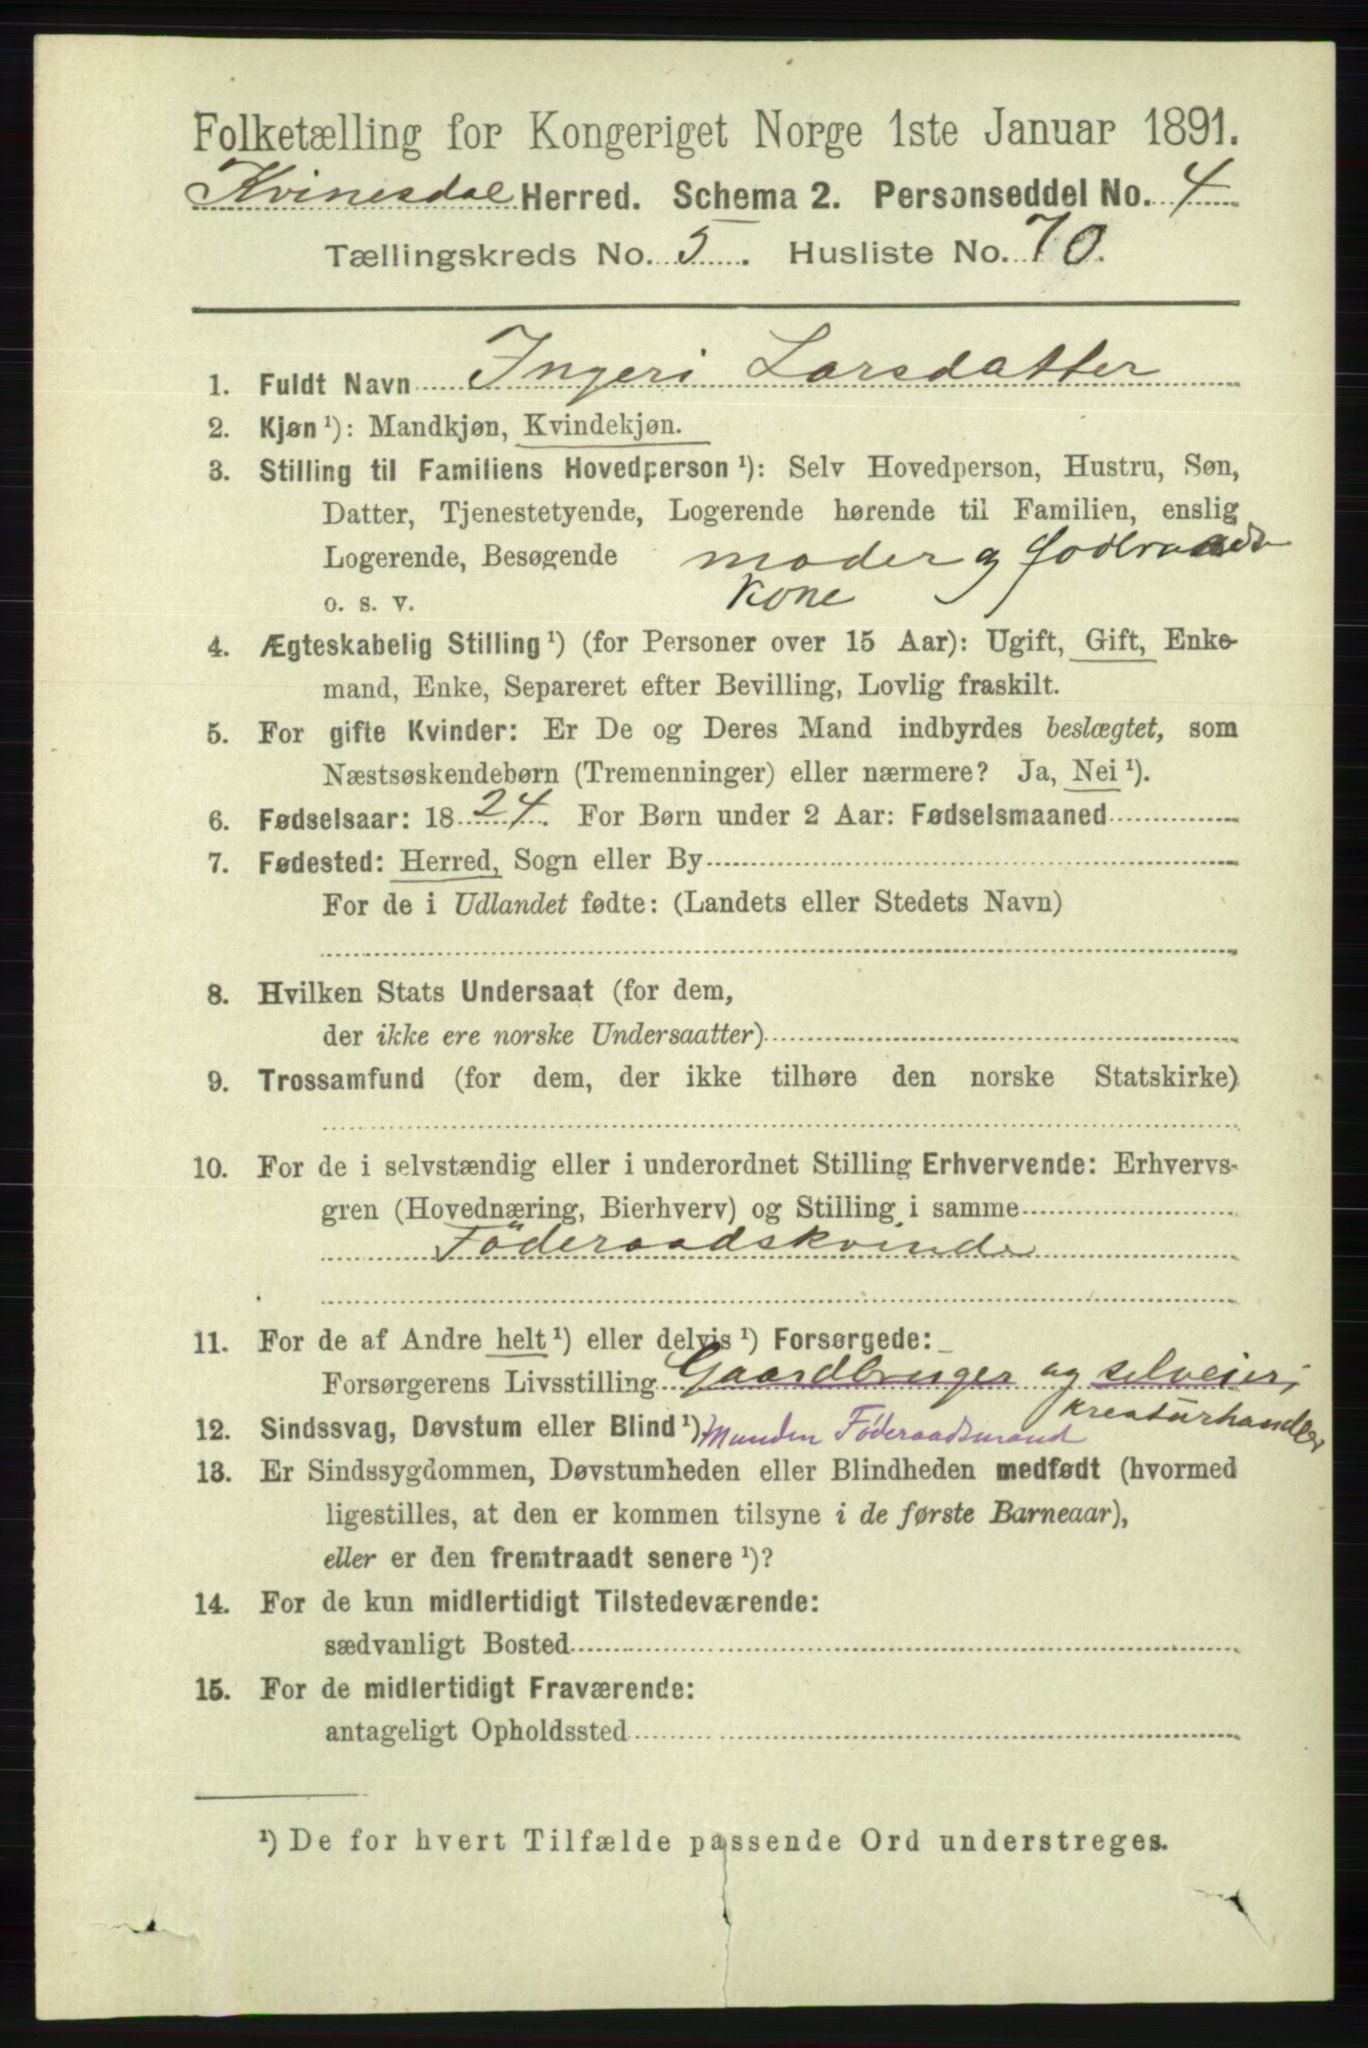 Folketælling for Kongeriget Norge 1ste Januar 1891.
Kvinesdal Herred. Schema 2. Personseddel No. 4
Tællingskreds No. 5. Husliste No. 70.
1. Fuldt Navn Ingeri Larsdatter
2. Kjøn ¹): Mandkjøn, Kvindekjøn.
3. Stilling til Familiens Hovedperson ¹): Selv Hovedperson, Hustru, Søn,
Datter, Tjenestetyende, Logerende hørende til Familien, enslig
Logerende, Besøgende moder og
o. s. v. Kone
4. Ægteskabelig Stilling ¹) (for Personer over 15 Aar): Ugift, Gift, Enke-
mand, Enke, Separeret efter Bevilling, Lovlig fraskilt.
5. For gifte Kvinder: Er De og Deres Mand indbyrdes beslægtet, som
Næstsøskendebørn (Tremenninger) eller nærmere? Ja, Nei ¹).
6. Fødselsaar: 1824. For Børn under 2 Aar: Fødselsmaaned
7. Fødested: Herred, Sogn eller By
For de i Udlandet fødte: (Landets eller Stedets Navn)
8. Hvilken Stats Undersaat (for dem,
der ikke ere norske Undersaatter)
9. Trossamfund (for dem, der ikke tilhøre den norske Statskirke)
10. For de i selvstændig eller i underordnet Stilling Erhvervende: Erhvervs-
gren (Hovednæring, Bierhverv) og Stilling i samme
Föderaadskvinde
11. For de af Andre helt ¹) eller delvis ¹) Forsørgede:
Forsørgerens Livsstilling Gaardbruger og selveier,
kreaturhandler
12. Sindssvag, Døvstum eller Blind ¹) Manden Føderaadsmand
13. Er Sindssygdommen, Døvstumheden eller Blindheden medfødt (hvormed
ligestilles, at den er kommen tilsyne i de første Barneaar),
eller er den fremtraadt senere ¹)?
14. For de kun midlertidigt Tilstedeværende:
sædvanligt Bosted
15. For de midlertidigt Fraværende:
antageligt Opholdssted
¹) De for hvert Tilfælde passende Ord understreges.